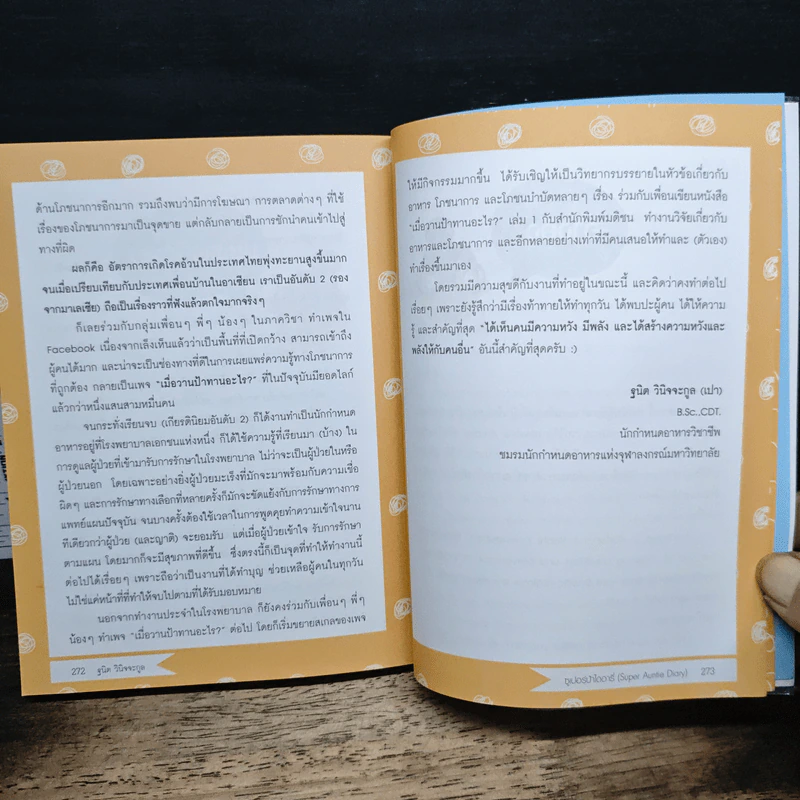 ด้านโภชนาการอีกมาก รวมถึงพบว่ามีการโฆษณา การตลาดต่างๆ ที่ใช้
เรื่องของโภชนาการมาเป็นจุดขาย แต่กลับกลายเป็นการชักนำคนเข้าไปสู่
ทางที่ผิด
ผลก็คือ อัตราการเกิดโรคอ้วนในประเทศไทยพุ่งทะยานสูงขึ้นมาก
จนเมื่อเปรียบเทียบกับประเทศเพื่อนบ้านในอาเซียน เราเป็นอันดับ 2 (รอง
จากมาเลเซีย) ถือเป็นเรื่องราวที่ฟังแล้วตกใจมากจริงๆ
ก็เลยร่วมกับกลุ่มเพื่อนๆ พี่ๆ น้องๆ ในภาควิชา ทำเพจใน
Facebook เนื่องจากเล็งเห็นแล้วว่าเป็นพื้นที่ที่เปิดกว้าง สามารถเข้าถึง
ผู้คนได้มาก และน่าจะเป็นช่องทางที่ดีในการเผยแพร่ความรู้ทางโภชนาการ
ที่ถูกต้อง กลายเป็นเพจ "เมื่อวานป้าทานอะไร?" ที่ในปัจจุบันมียอดไลก์
แล้วกว่าหนึ่งแสนสามหมื่นคน
จนกระทั่งเรียนจบ (เกียรตินิยมอันดับ 2) ก็ได้งานทำเป็นนักกำหนด
อาหารอยู่ที่โรงพยาบาลเอกชนแห่งหนึ่ง ก็ได้ใช้ความรู้ที่เรียนมา (บ้าง) ใน
การดูแลผู้ป่วยที่เข้ามารับการรักษาในโรงพยาบาล ไม่ว่าจะเป็นผู้ป่วยในหรือ
ผู้ป่วยนอก โดยเฉพาะอย่างยิ่งผู้ป่วยมะเร็งที่มักจะมาพร้อมกับความเชื่อ
ผิดๆ และการรักษาทางเลือกที่หลายครั้งก็มักจะขัดแย้งกับการรักษาทางการ
แพทย์แผนปัจจุบัน จนบางครั้งต้องใช้เวลาในการพูดคุยทำความเข้าใจนาน
ทีเดียวกว่าผู้ป่วย (และญาติ) จะยอมรับ แต่เมื่อผู้ป่วยเข้าใจ รับการรักษา
ตามแผน โดยมากก็จะมีสุขภาพที่ดีขึ้น ซึ่งตรงนี้ก็เป็นจุดที่ทำให้ทำงานนี้
ต่อไปได้เรื่อยๆ เพราะถือว่าเป็นงานที่ได้ทำบุญ ช่วยเหลือผู้คนในทุกวัน
ไม่ใช่แค่หน้าที่ที่ทำให้จบไปตามที่ได้รับมอบหมาย
นอกจากทำงานประจำในโรงพยาบาล ก็ยังคงร่วมกับเพื่อนๆ พี่ๆ
น้องๆ ทำเพจ "เมื่อวานป้าทานอะไร?" ต่อไป โดยก็เริ่มขยายสเกลของเพจ
272 ฐนิต วินิจจะกูล
ให้มีกิจกรรมมากขึ้น ได้รับเชิญให้เป็นวิทยากรบรรยายในหัวข้อเกี่ยวกับ
อาหาร โภชนาการ และโภชนบำบัดหลายๆ เรื่อง ร่วมกับเพื่อนเขียนหนังสือ
"เมื่อวานป้าทานอะไร?" เล่ม 1 กับสำนักพิมพ์มติชน ทำงานวิจัยเกี่ยวกับ
อาหารและโภชนาการ และอีกหลายอย่างเท่าที่มีคนเสนอให้ทำและ (ตัวเอง)
ทำเรื่องขึ้นมาเอง
โดยรวมมีความสุขดีกับงานที่ทำอยู่ในขณะนี้ และคิดว่าคงทำต่อไป
เรื่อยๆ เพราะยังรู้สึกว่ามีเรื่องท้าทายให้ทำทุกวัน ได้พบปะผู้คน ได้ให้ความ
รู้ และสำคัญที่สุด "ได้เห็นคนมีความหวัง มีพลัง และได้สร้างความหวังและ
พลังให้กับคนอื่น" อันนี้สำคัญที่สุดครับ :)
ฐนิต วินิจจะกูล (เปา)
B.Sc.,CDT.
นักกำหนดอาหารวิชาชีพ
ชมรมนักกำหนดอาหารแห่งจุฬาลงกรณ์มหาวิทยาลัย
ซูเปอร์ป้าไดอารี่ (Super Auntie Diary) 273